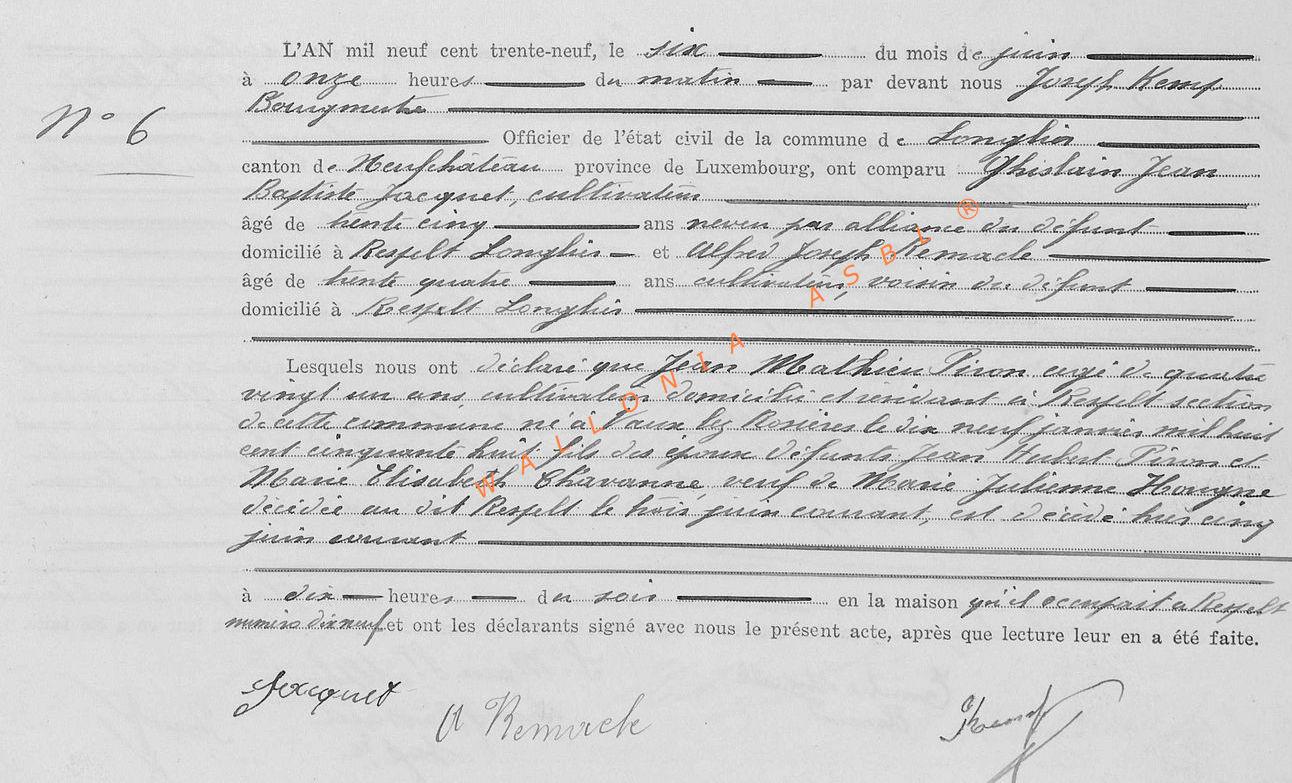 L'AN mil neuf cent trente-neuf, le six du mois de juin
à onze heures du matin par devant nous Joseph Kemp
Bourgmestre
N° 6
Officier de l'état civil de la commune de Longlier
canton de Neufchâteau province de Luxembourg, ont comparu Ghislain Jean
Baptiste Jacquet, cultivateur
âgé de trente cinq ans neveu par alliance du défunt
domicilié à Respelt Longlier et Alfred Joseph Remacle
âgé de trente quatre ans cultivateur, voisin du défunt
domicilié à Respelt Longlier
Lesquels nous ont déclaré que Jean Mathieu Piron agé de quatre
vingt un ans, cultivateur domicilié et résidant à Respelt section
de cette commune né à Vaux lez Rosières le dix neuf janvier mil huit
cent cinquante huit fils des époux défunts Jean Hubert Piron et
Marie Elisabeth Chavanne, veuf de Marie Julienne Hougne
décédée au dit Respelt le trois juin courant, est décédé hier cinq
juin courant
à dix heures du soir en la maison qu'il occupait à Respelt
numéro dix neuf et ont les déclarants signé avec nous le présent acte, après que lecture leur en a été faite.
Jacquet
A Remacle
Kemp
WALLONIA ASBL ®